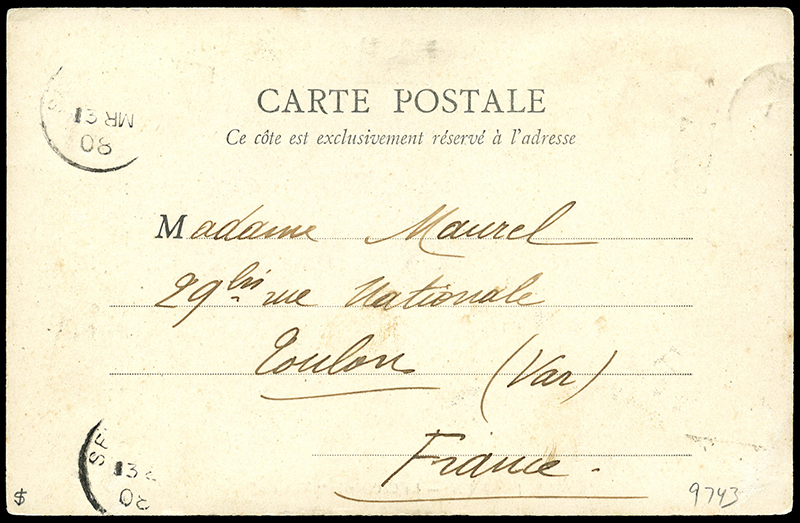 CARTE POSTALE
Ce côte est exclusivement réservé à l'adresse
MR 13
08
Madame Maurel
29bis rue Nationale
Toulon (Var)
France.
SE
13
9743
$